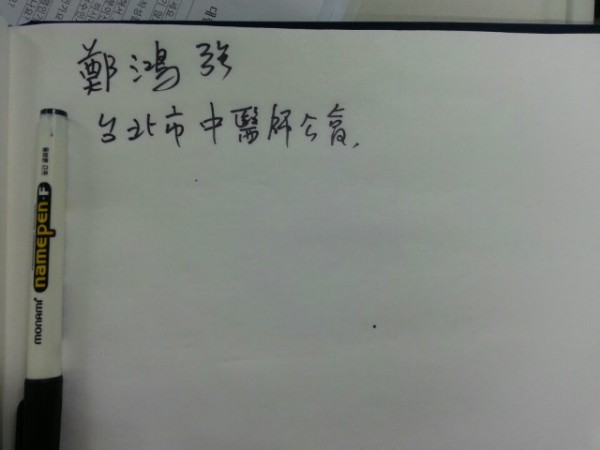 鄭鴻強
台北市中醫師公會.
monami namepen-F